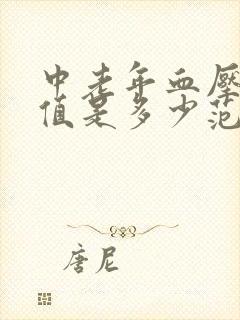 中老年血压
值是多少范
唐尼